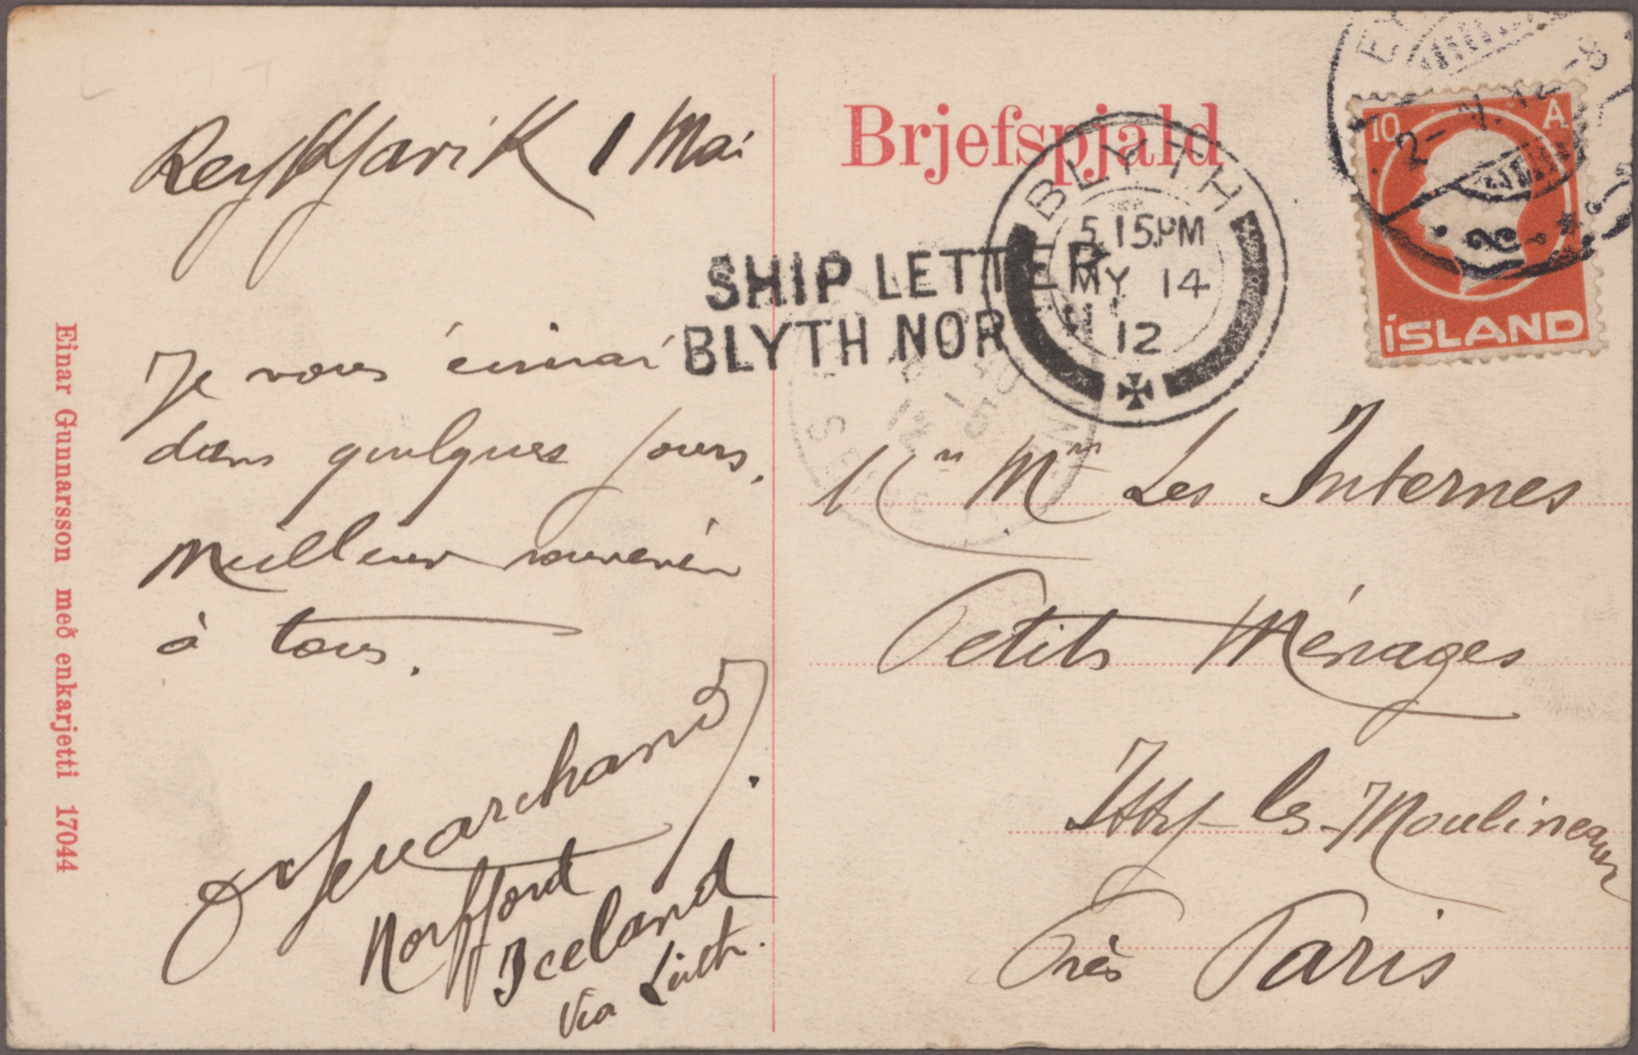 Reykjavik 1 Mai
Je vous écrirai
dans quelques jours.
Meilleur souvenir
à tous.
Marchand
Norffjord
Iceland
Via Leith.
Einar Gunnarsson með enkarjetti 17044
Brjefspjald
SHIP LETTER
BLYTH NOR
BLYTH
5.15PM
MY 14
12
10 A
ÍSLAND
Les Internes
Petits Ménages
Issy-les-Moulineaux
Près Paris